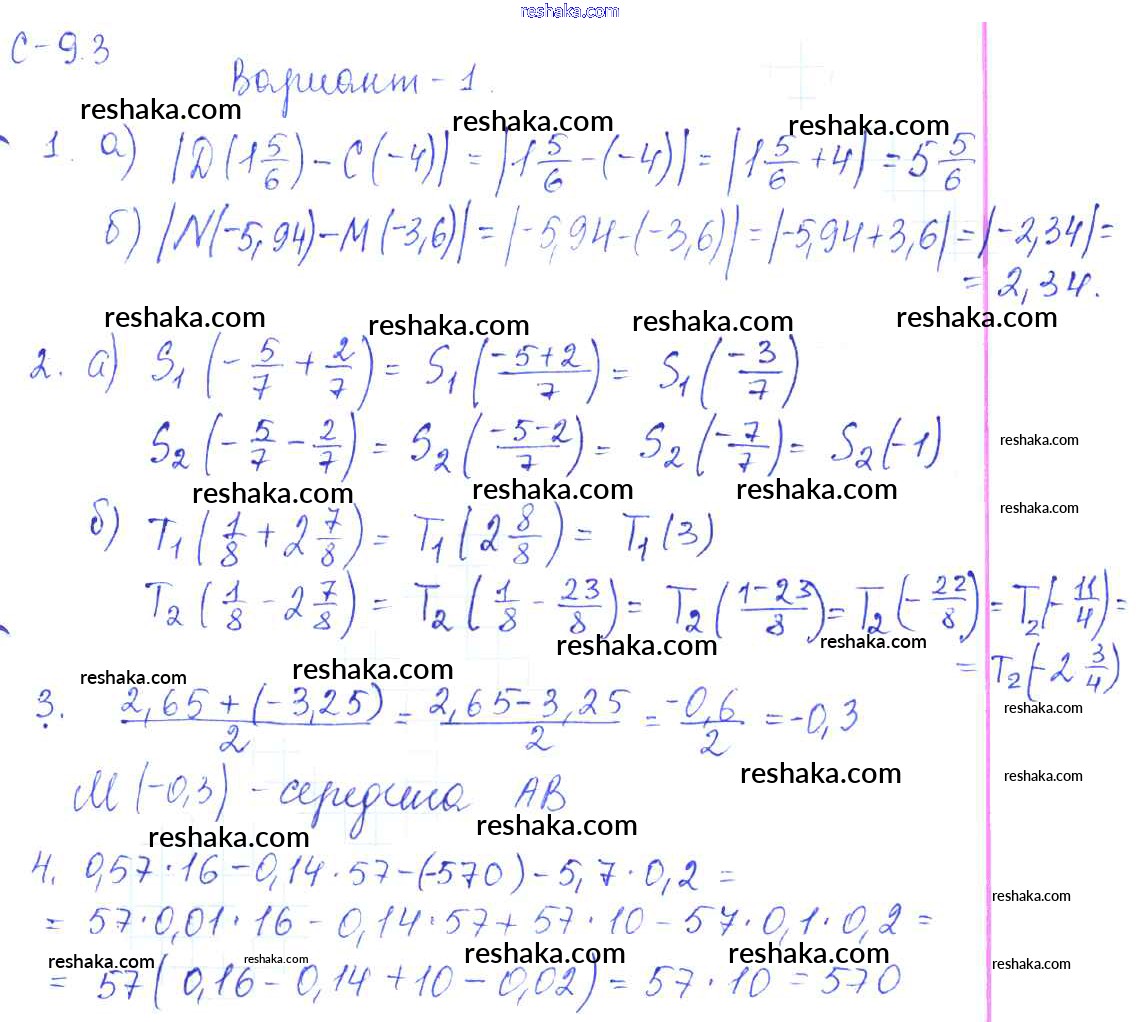 reshaka.com
С-9.3
Вариант-1.
reshaka.com reshaka.com reshaka.com
1. а) |D(1 5/6) - C(-4)| = |1 5/6 - (-4)| = |1 5/6 + 4| = 5 5/6
б) |N(-5,94) - M(-3,6)| = |-5,94-(-3,6)| = |-5,94+3,6| = |-2,34| =
= 2,34.
reshaka.com reshaka.com reshaka.com reshaka.com
2. а) S1 (- 5/7 + 2/7) = S1 ((-5+2)/7) = S1 (-3/7)
S2 (- 5/7 - 2/7) = S2 ((-5-2)/7) = S2 (-7/7) = S2 (-1)
reshaka.com
reshaka.com reshaka.com reshaka.com
reshaka.com
б) T1 (1/8 + 2 7/8) = T1 (2 8/8) = T1 (3)
T2 (1/8 - 2 7/8) = T2 (1/8 - 23/8) = T2 ((1-23)/8) = T2 (- 22/8) = T2 (- 11/4) =
= T2 (-2 3/4)
reshaka.com reshaka.com
reshaka.com reshaka.com
3. (2,65 + (-3,25))/2 = (2,65 - 3,25)/2 = -0,6/2 = -0,3
reshaka.com
M (-0,3) - середина AB
reshaka.com reshaka.com
reshaka.com reshaka.com
4. 0,57·16 - 0,14·57 - (-570) - 5,7·0,2 =
reshaka.com
= 57·0,01·16 - 0,14·57 + 57·10 - 57·0,1·0,2 =
reshaka.com reshaka.com reshaka.com reshaka.com reshaka.com
= 57(0,16 - 0,14 + 10 - 0,02) = 57·10 = 570